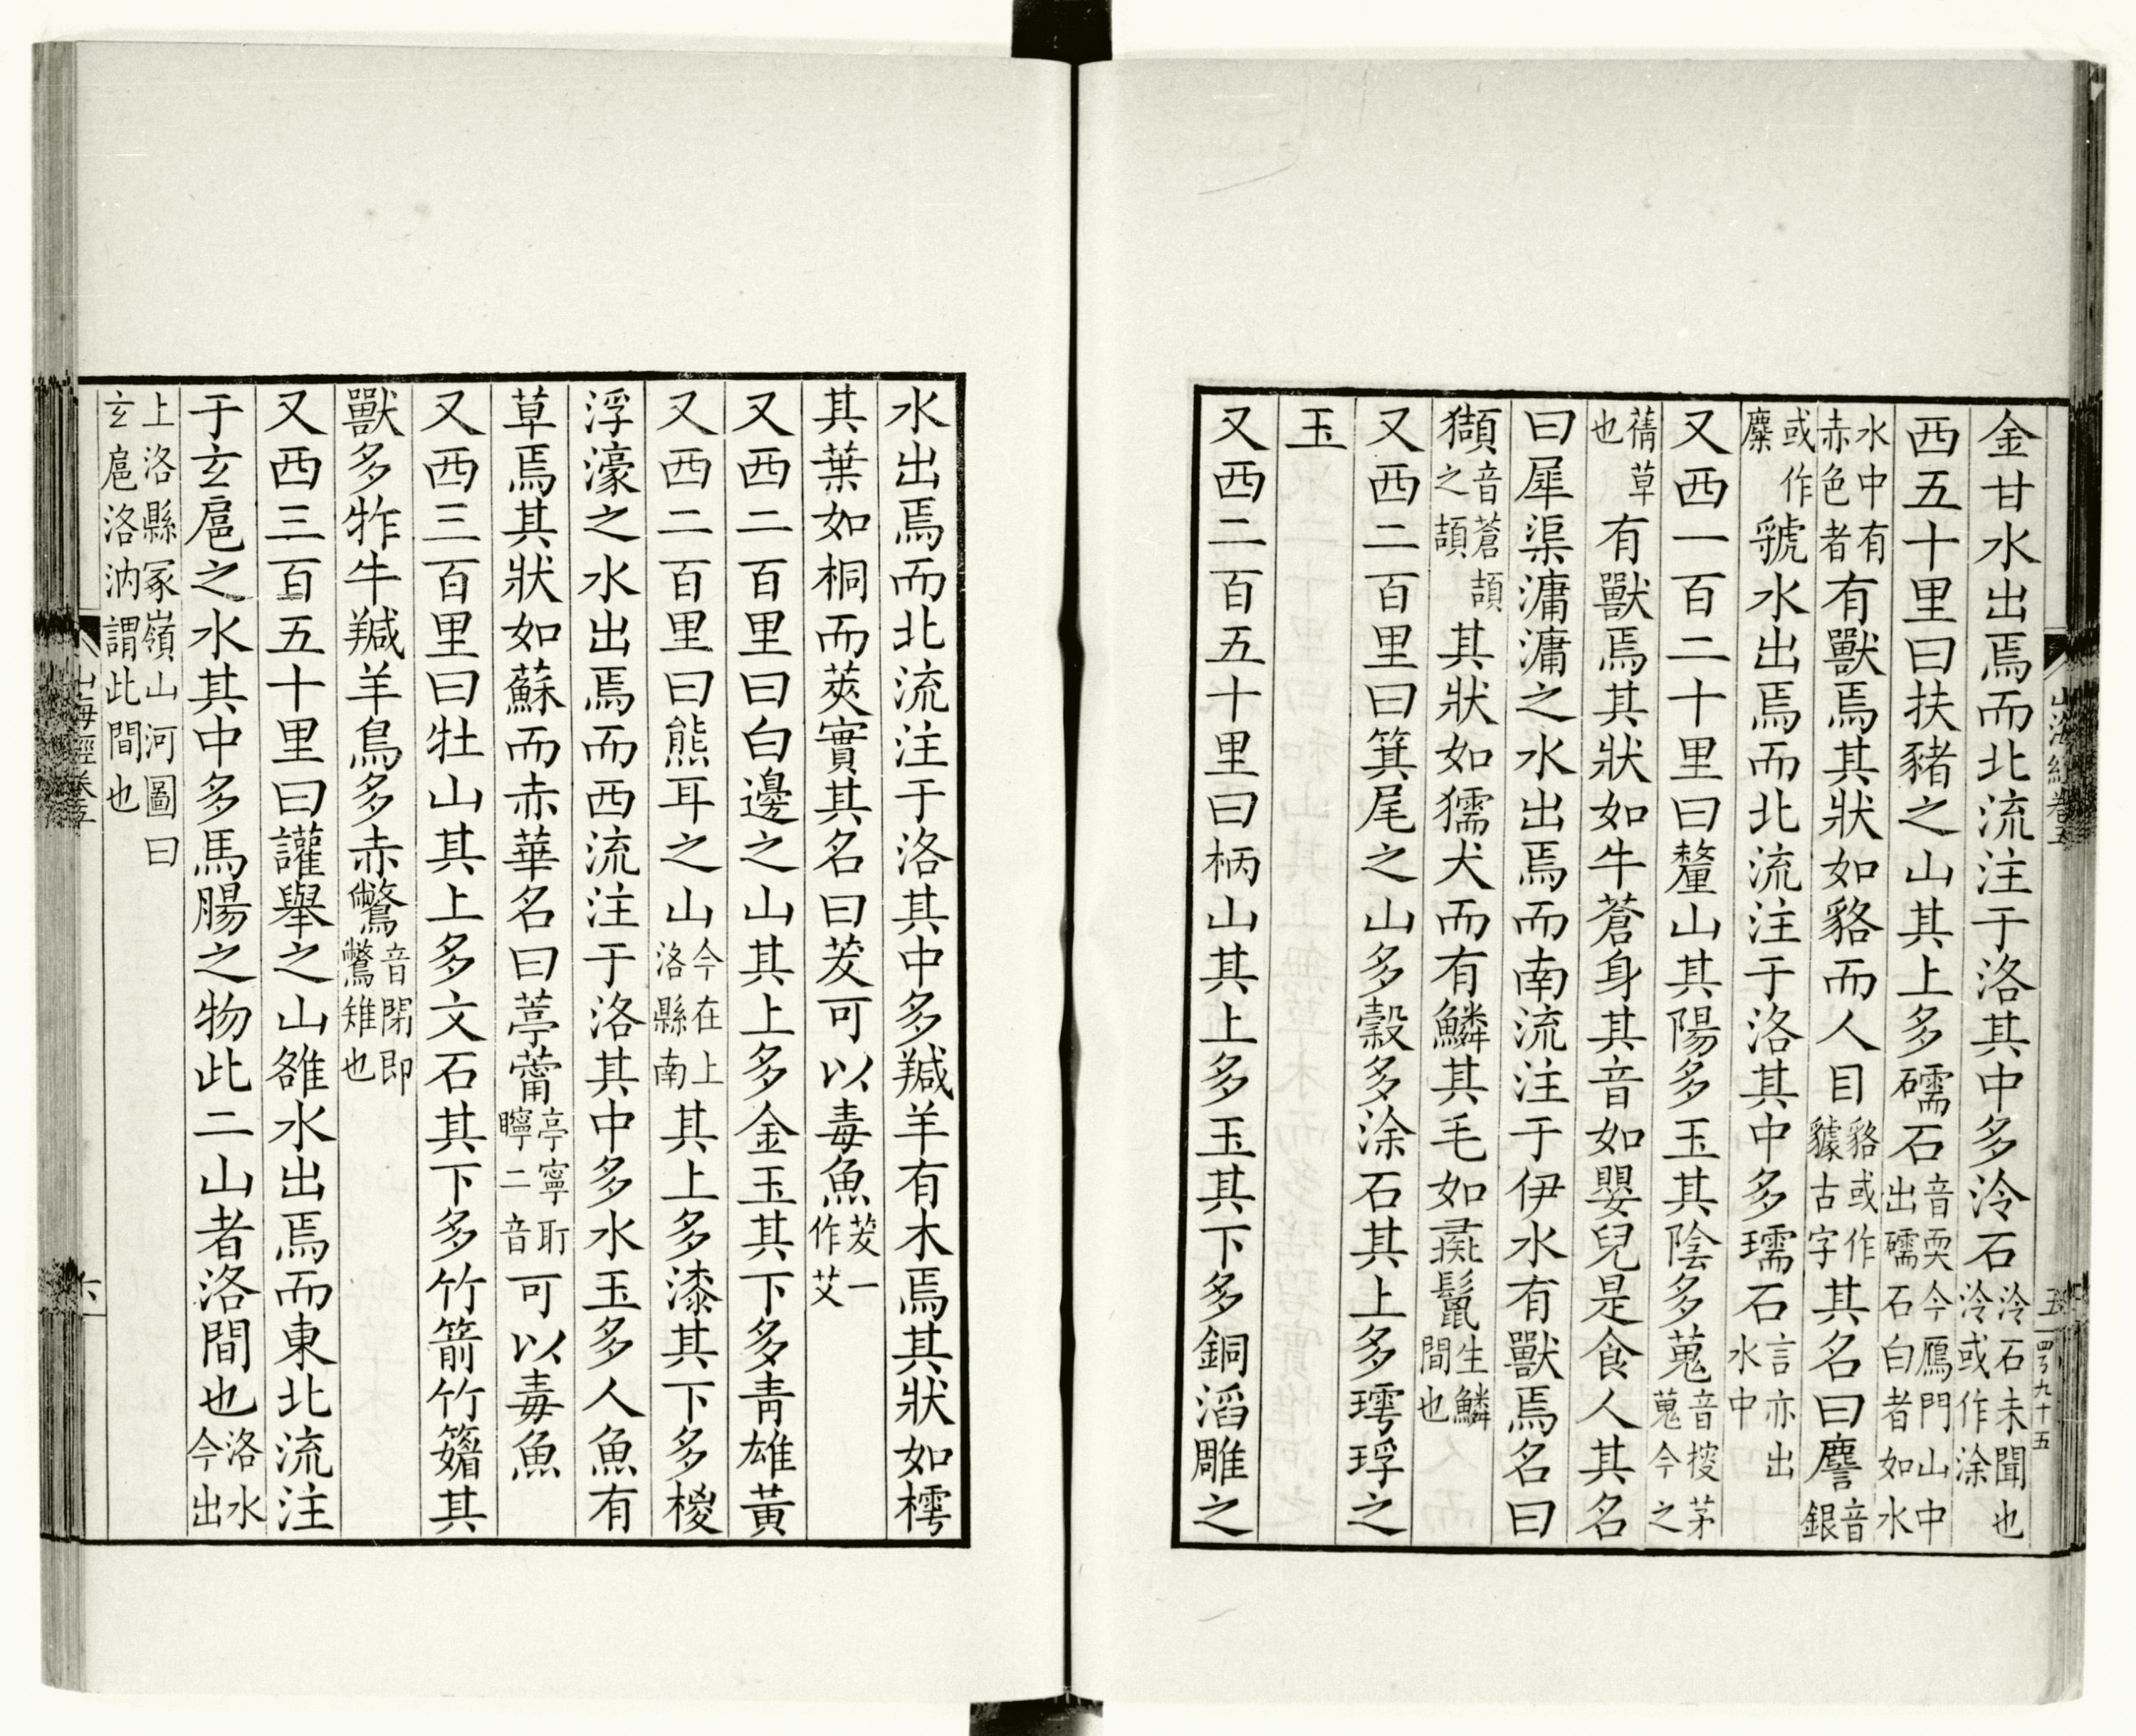 金甘水出焉而北流注于洛其中多泠石泠石未聞也泠或作涂
西五十里曰扶豬之山其上多礝石音耎今鴈門山中出礝石白者如水
水中有赤色者有獸焉其狀如貉而人目貉或作䝞古字其名曰䴦音銀
或作麋虢水出焉而北流注于洛其中多瓀石言亦出水中
又西一百二十里曰釐山其陽多玉其陰多蒐音搜茅蒐今之
蒨草也有獸焉其狀如牛蒼身其音如嬰兒是食人其名
曰犀渠滽滽之水出焉而南流注于伊水有獸焉名曰
䫥音蒼頡之頡其狀如獳犬而有鱗其毛如彘鬣生鱗間也
又西二百里曰箕尾之山多榖多涂石其上多㻬琈之
玉
又西二百五十里曰柄山其上多玉其下多銅滔雕之
山海經卷五
五
四百九十五
水出焉而北流注于洛其中多羬羊有木焉其狀如樗
其葉如桐而莢實其名曰茇可以毒魚茇一作艾
又西二百里曰白邊之山其上多金玉其下多青雄黃
又西二百里曰熊耳之山今在上洛縣南其上多漆其下多椶
浮濠之水出焉而西流注于洛其中多水玉多人魚有
草焉其狀如蘇而赤華名曰葶薴亭寧耵矃二音可以毒魚
又西三百里曰牡山其上多文石其下多竹箭竹䉋其
獸多㸲牛羬羊鳥多赤鷩音閉即鷩雉也
又西三百五十里曰讙舉之山雒水出焉而東北流注
于玄扈之水其中多馬腸之物此二山者洛間也洛水今出
上洛縣冢嶺山河圖曰玄扈洛汭謂此間也
山海經卷五
六